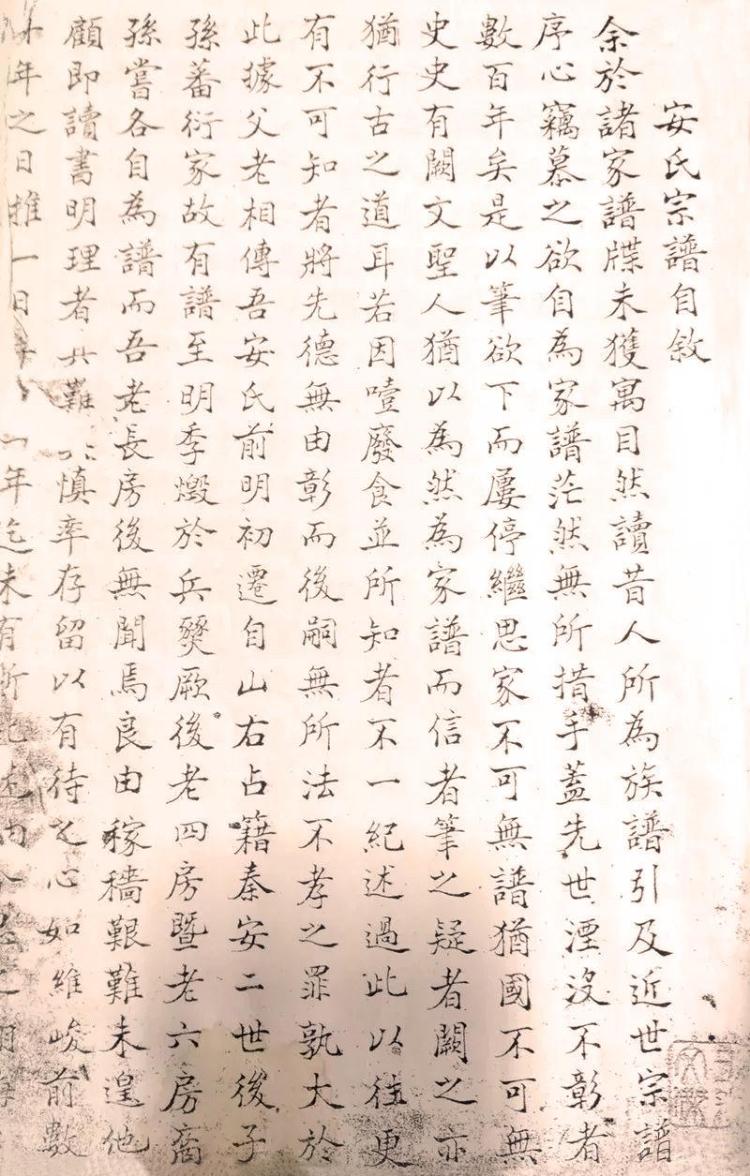 安氏宗譜自敘
余於諸家譜牒未獲寓目然讀昔人所為族譜引及近世宗譜
序心竊慕之欲自為家譜茫然無所措手蓋先世湮沒不彰者
數百年矣是以筆欲下而屢停繼思家不可無譜猶國不可無
史史有闕文聖人猶以為然為家譜而信者筆之疑者闕之亦
猶行古之道耳若因噎廢食並所知者不一紀述過此以往更
有不可知者將先德無由彰而後嗣無所法不孝之罪孰大於
此據父老相傳吾安氏前明初遷自山右占籍秦安二世後子
孫蕃衍家故有譜至明季燬於兵燹厥後老四房暨老六房裔
孫嘗各自為譜而吾老長房後無聞焉良由稼穡艱難未遑他
顧即讀書明理者共難慎率存留以有待之心如維峻前數
年之日推一日年迄未有所